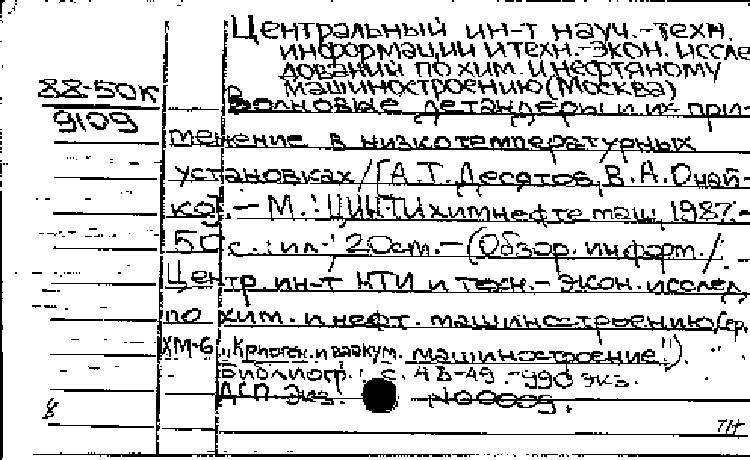 Центральный ин-т науч.-техн.
информации и техн.-экон. иссле
дований по хим. и нефтяному
машиностроению (Москва)
88-50к
9109
Волновые детандеры и их при-
менение в низкотемпературных
установках / [А.Т. Десятов, В.А. Онай-
ко]. - М.: ЦИНТИхимнефтемаш, 1987. -
50 с.: ил.; 20 см. - (Обзор. информ. /
Центр. ин-т НТИ и техн.- экон. исслед.
по хим. и нефт. машиностроению (сер.
ХМ-6 "Криоген. и вакуум. машиностроение").
Библиогр.: с. 48-49. - 990 экз.
ДСП. Экз. N00009.